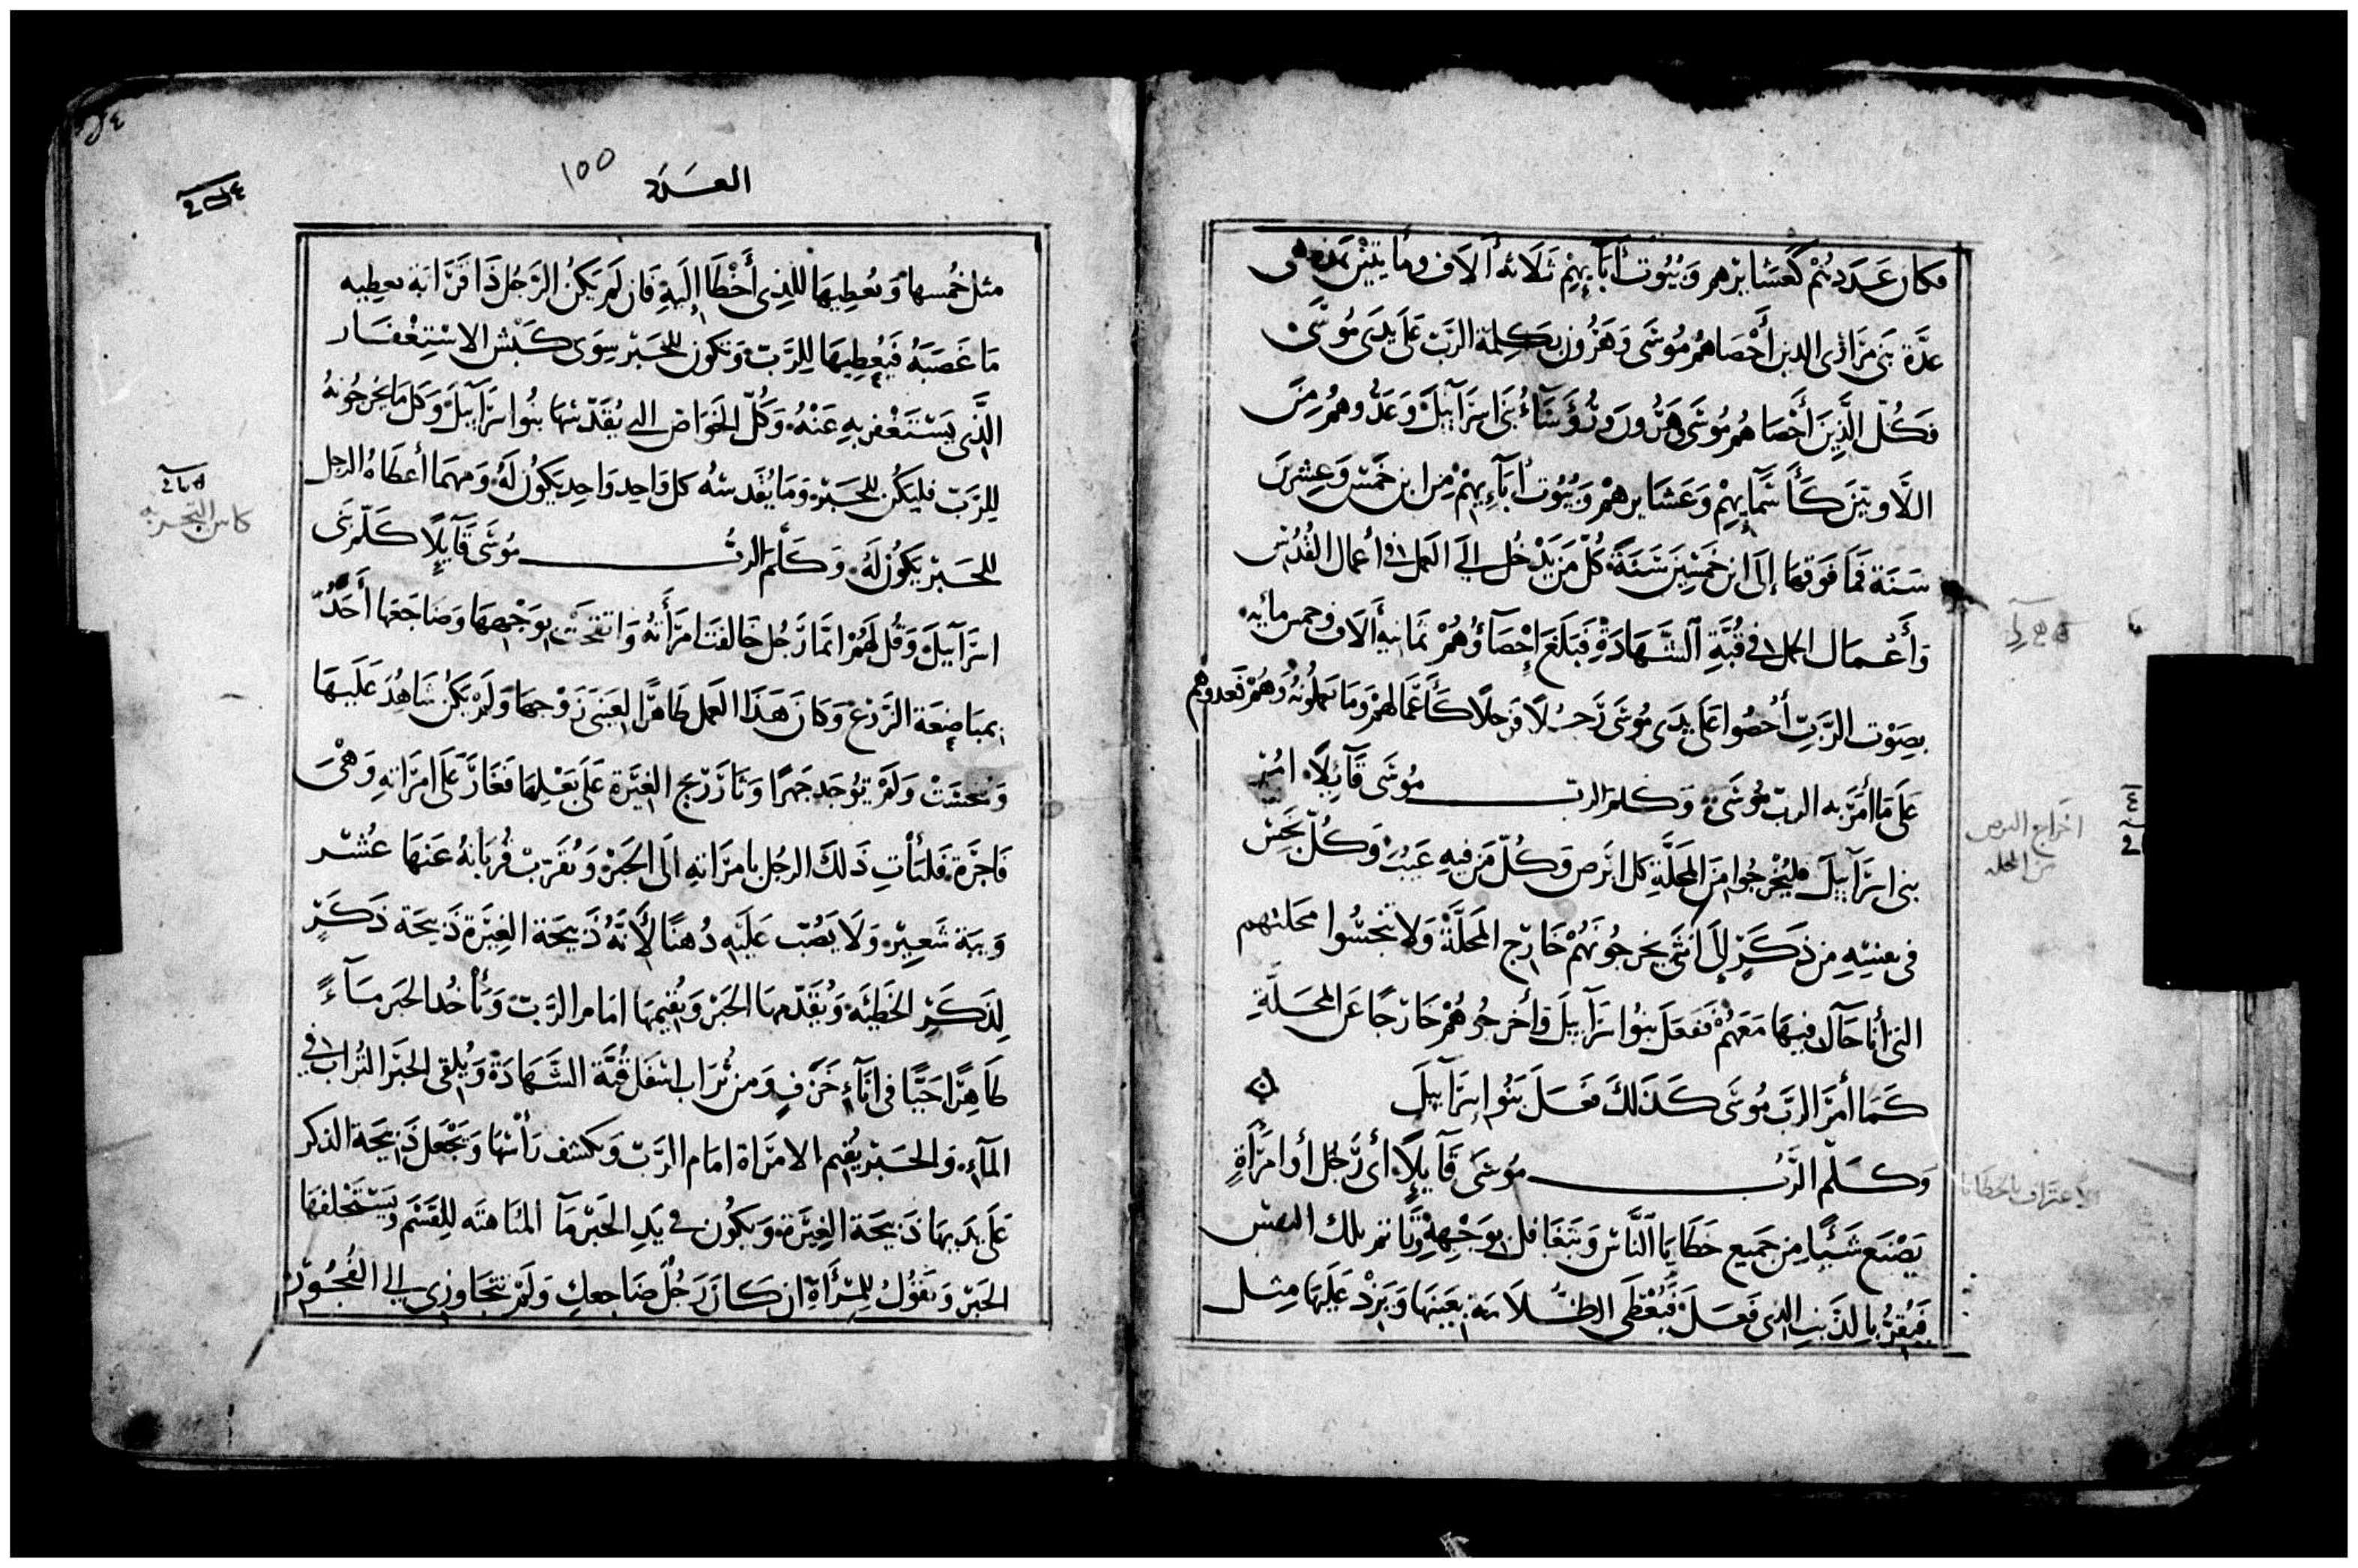 فكان عددهم كعشايرهم وبيوت أبآئهم ثلاثه ألاف ومايتين هى
عدَّة بنى مرارى الدين أحصاهم موسَى وهرون بكلمة الربّ علَى يدَى موسَى
فكلّ الَّذين أحصاهم موسَى وهرون ورُؤسَآءُ بنى اسرآييل وعدُّوهم من
اللَّاويين كأسمآيهم وعشايرهم وبيوت أبآءيهم من ابن خمس وعشرين
سنة فما فوقها إلى ابن خمسين سَنَةً كلّ من يدخل الي العمل فى أعمال القدس
وأعمال الحمل فى قُبَّةِ الشَّهادَةِ فبلغ إحْصآؤهم ثمانية ألاف وخمس مائه
بصوت الرَّبّ أُحصوا على يدى موسَى رَجُلًا فرجلًا كأعمالهم وما يحملونه وهُم فعدوهم
علَى ما أمرَ به الرب موسَى وكلم الرب موسَى قآئلًا امُر
بنى اسرآييل فليُخْرجوا من المحلَّةِ كل ابرص وكلّ من فيه عيب وكُلّ نجس
فى نفسِهِ من ذكرٍ إلى أنثى يخرجونهُم خارج المحلَّة ولا تنجسُّوا محلتهم
التى أنا حآل فيها معهم ففعل بنوا اسرآييل وأخرجوهم خارجًا عن المحلَّةِ
كما أمرَ الربّ موسَى كذلك فعل بنوا إسرآييل
وكلّم الرَّبُ موسَى قآيلًا أى رَجُل أو امرَأَةٍ
يصنع شيئًا من جميع خطايا النَّاس ويتغافل بوجْههِ وتاثم تلك النفس
فيُقرّ بالذنب الذى فَعَلَ فيُعْطَى الظلامة بعينها ويزدْ عليها مثل
العدد
100
مثل خُمسها ويُعطيها للذى أَخْطَأ إليهِ فان لم يكن الرَّجُل ذا قرابة يعطيه
ما غصبَهُ فيُعطيها للرَّبّ وتكون للحَبْر سِوَى كبش الاستِغْفار
الَّذى يستغفر به عَنْهُ وكُلّ الخواص التي يُقدّسُها بنوا اسرآييل وكل ما يخرجونه
للرَّبّ فليكُن للحَبْر وما يُقدسُه كل واحد واحد يكون لَهُ ومهما أعطاهُ الرجل
للحَبْر يكُون لَهُ وكلّم الربُ موسَى قآيلًا كلّم بنى
اسرآييل وقُل لَهُم انَّما رَجُل خالفت امرَأتهُ واتضحت بوجْهها وضاجعها أحَدٌ
بمباضعة الزرع وكان هذا العمل ظاهرًا لعينى زوْجها ولَمْ يكُن شاهد عليها
ونجست ولم توجد جهرًا وثار ريح الغيرة على بَعْلها فغارَ على امرَاته وهىَ
فاجرة فليأتِ ذلك الرجُل بامرَاتهِ الى الحَبْر ويُقرّب قُربانهُ عنها عُشر
ويبة شعيرٍ ولا يصُبّ عليه دُهنًا لأنَّهُ ذَبيحة الغيرَة ذَبيحة ذكَرٍ
لذكَرِ الخَطيَه ويُقدّمها الحَبْر ويُقيمها امام الرَّبّ ويأخُد الحَبر مآءً
طاهرًا حيًّا فى انآءِ خزفٍ ومن تُرَاب اسفل قُبَّة الشَّهادَة ويُلقى الحَبْر التُراب فى
المآء والحَبْر يُقيم الامرَاة امام الرَّبّ ويكشف رأسها وتَجْعل ذَبيحة الذكر
على يدَيها ذبيحة الغيرَة ويكُون في يدِ الحَبْر مآ المُناهتَه للقَسْم ويستحلفها
الحَبْر ويقُول للمرَأَةِ ان كان رَجُل ضاجعكِ ولَمْ تتجاوزى الي الفُجُور
كاس التجربه
اخراج البرص
من المحله
الاعتراف بالخطايا